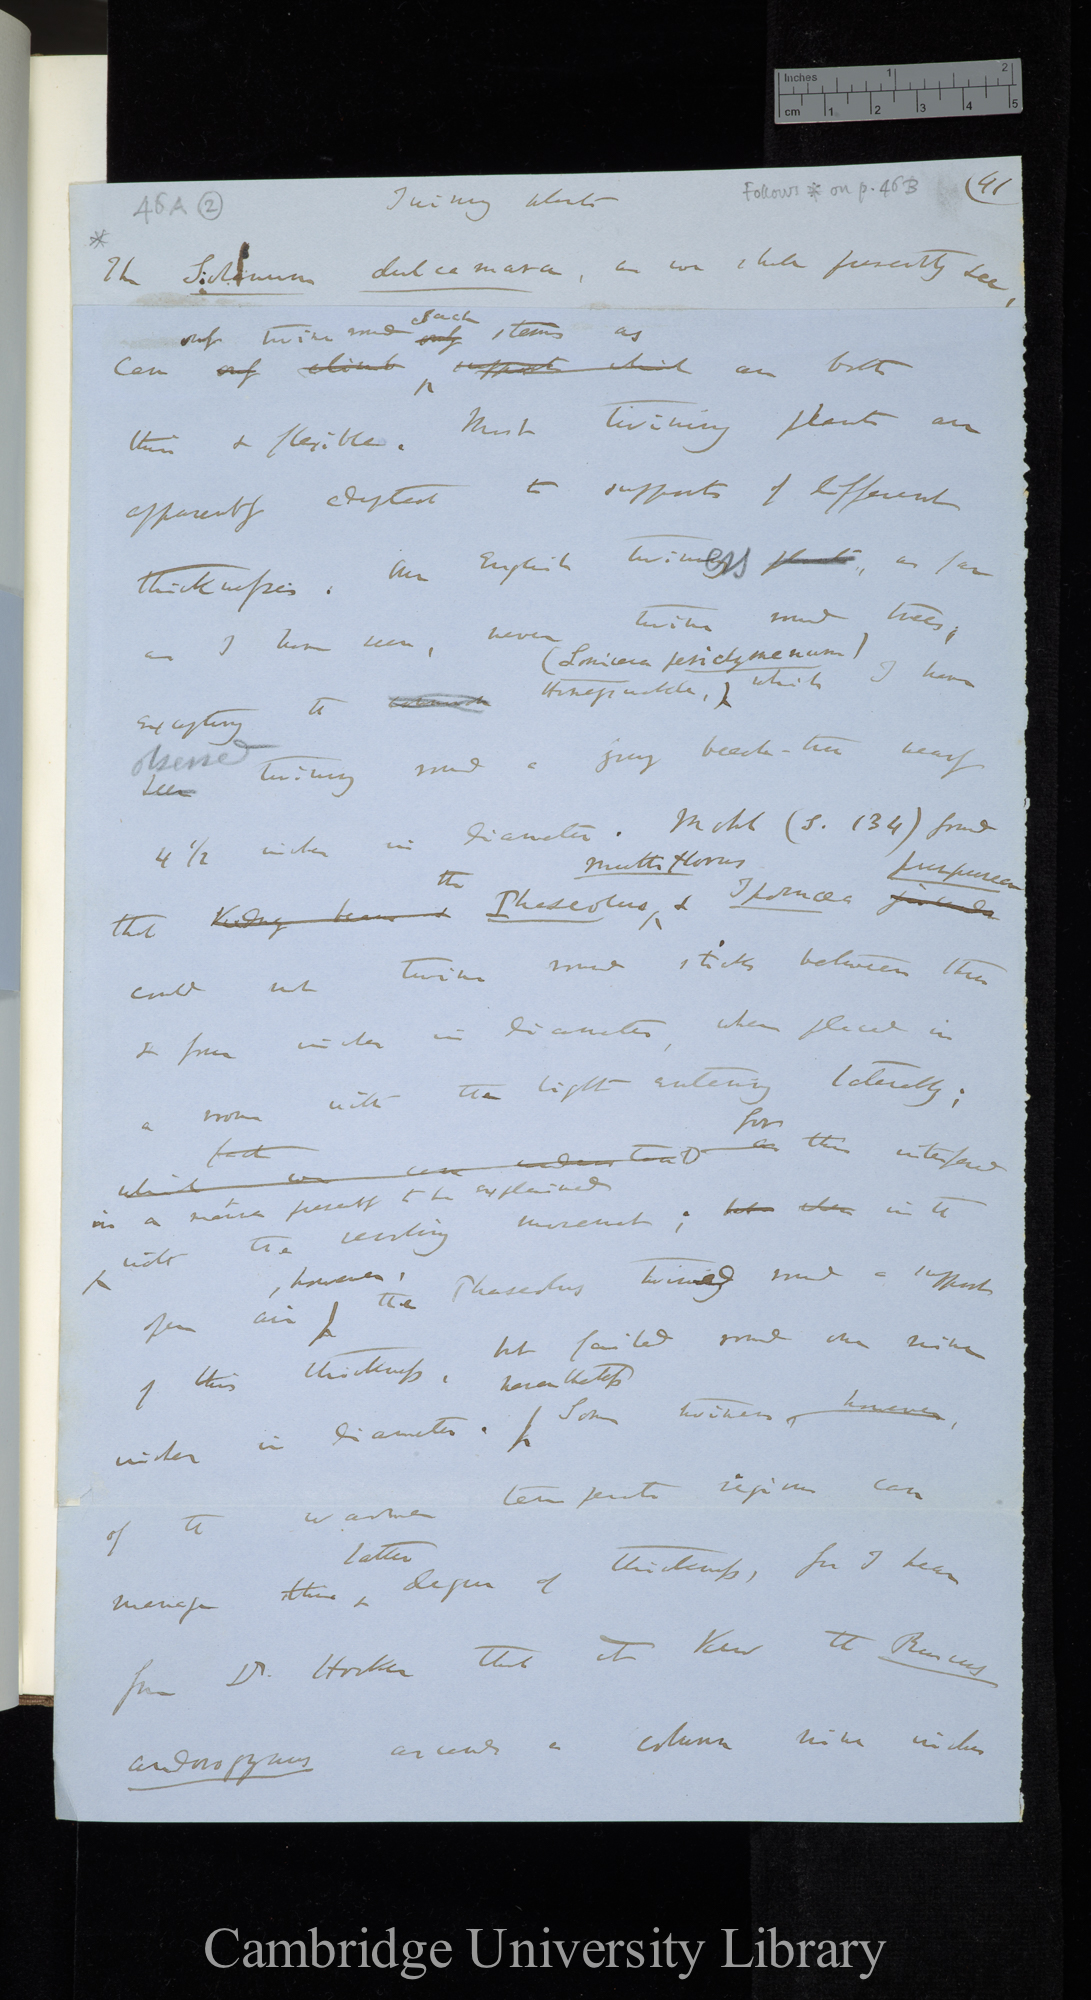 Inches 1 2
cm 1 2 3 4 5
46A ② Twining plants Follows * on p. 46B (41
*
The Solanum dulcamara, as we shall presently see,
only twine round such only stems as
Can only climb supports which are both
thin & flexible. Most twining plants are
apparently adapted to supports of different
thicknesses. Our English twiners plants, as far
as I have seen, never twine round trees,
(Lonicera periclymenum)
excepting the Honeysuckle, which I have
observed
seen twining round a young beech-tree nearly
4 1/2 inches in diameter. Mohl (S. 134) found
the multiflorus purpurea
that Kidney beans & Phaseolus & Ipomœa
could not twine round sticks between three
& four inches in diameter, when placed in
a room with the light entering laterally;
fact for
which we can understand as this interfered
in a manner presently to be explained
with the revolving movement; but when in the
, however,
open air the Phaseolus twined round a support
of this thickness, but failed round one nine
nevertheless
inches in diameter. Some twiners, however,
of the warmer temperate regions can
latter
manage this degree of thickness, for I hear
from Dr. Hooker that at Kew the Ruscus
androgynus ascends a column nine inches
Cambridge University Library